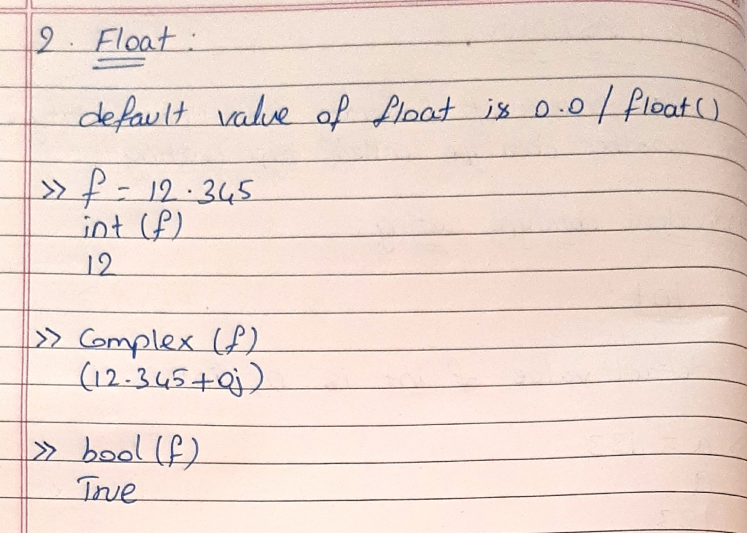 2. Float :
default value of float is 0.0 / float()
>> f = 12.345
int (f)
12
>> Complex (f)
(12.345+0j)
>> bool (f)
True